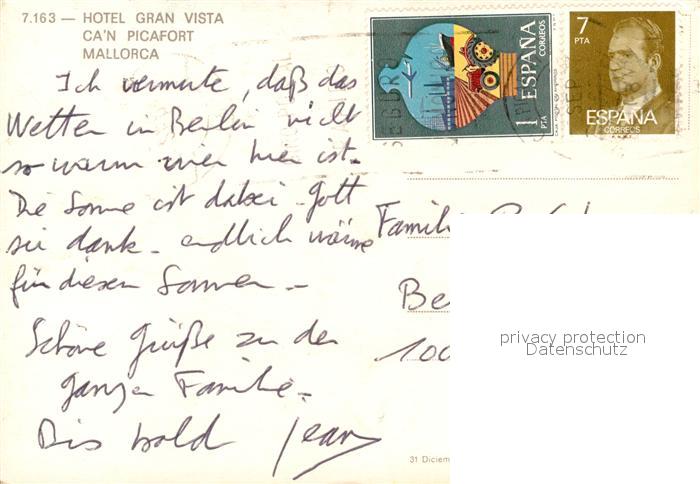 7.163 — HOTEL GRAN VISTA
CA'N PICAFORT
MALLORCA
1 PTA
ESPAÑA
CORREOS
7 PTA
ESPAÑA
CORREOS
Ich vermute, daß das
Wetter in Berlin nicht
so warm wie hier ist.
Die Sonne ist dabei - Gott
sei dank - endlich Wärme
für diesen Sommer -
Schöne Grüße zu der
ganzen Familie -
Bis bald Jean
Familie
Be
100
privacy protection
Datenschutz
31 Diciem